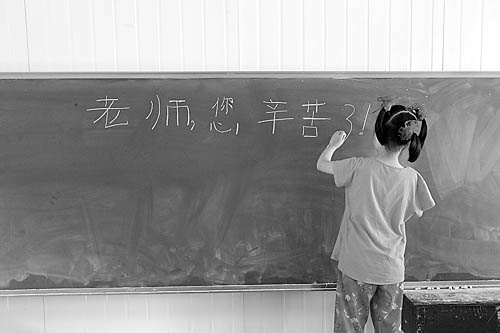 老师,您,辛苦了!